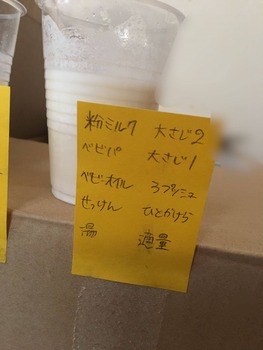 粉ミルク 大さじ2
ベビパ 大さじ1
ベビーオイル 3プッシュ
せっけん ひとかけら
湯 適量